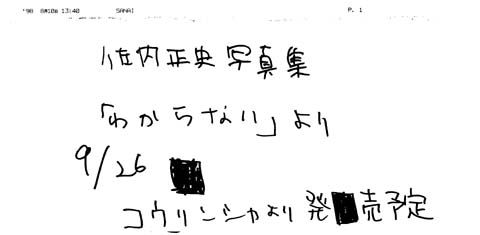 '98 8月10日 13:40 SANAI P. 1
佐内正史写真集
「わからない」より
9/26
コウリンシャより発売予定